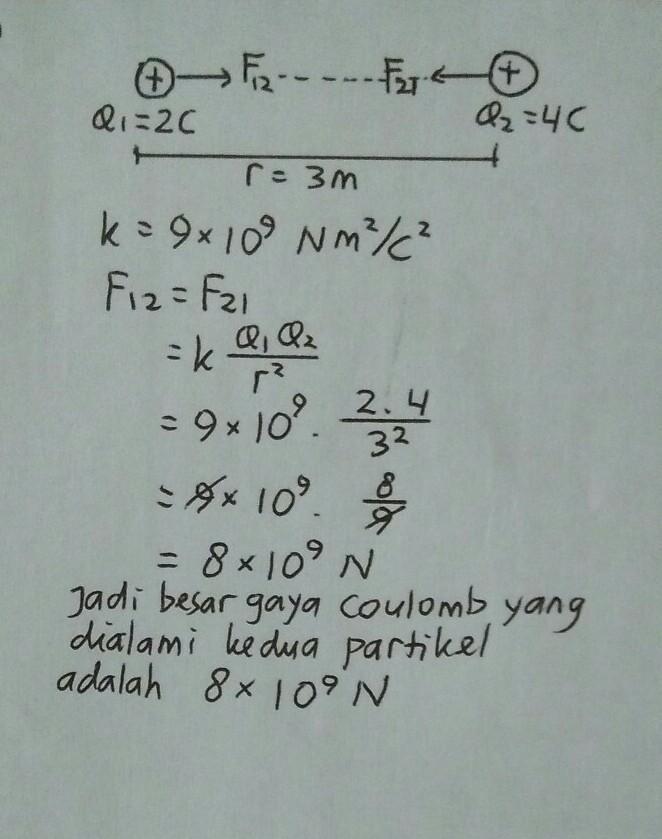 + F₁₂ F₂₁ +
Q₁ = 2C Q₂ = 4C
r = 3m
k = 9 × 10⁹ Nm²/C²
F₁₂ = F₂₁
= k Q₁ Q₂ / r²
= 9 × 10⁹ . 2 . 4 / 3²
= 9 × 10⁹ . 8 / 9
= 8 × 10⁹ N
Jadi besar gaya coulomb yang
dialami kedua partikel
adalah 8 × 10⁹ N